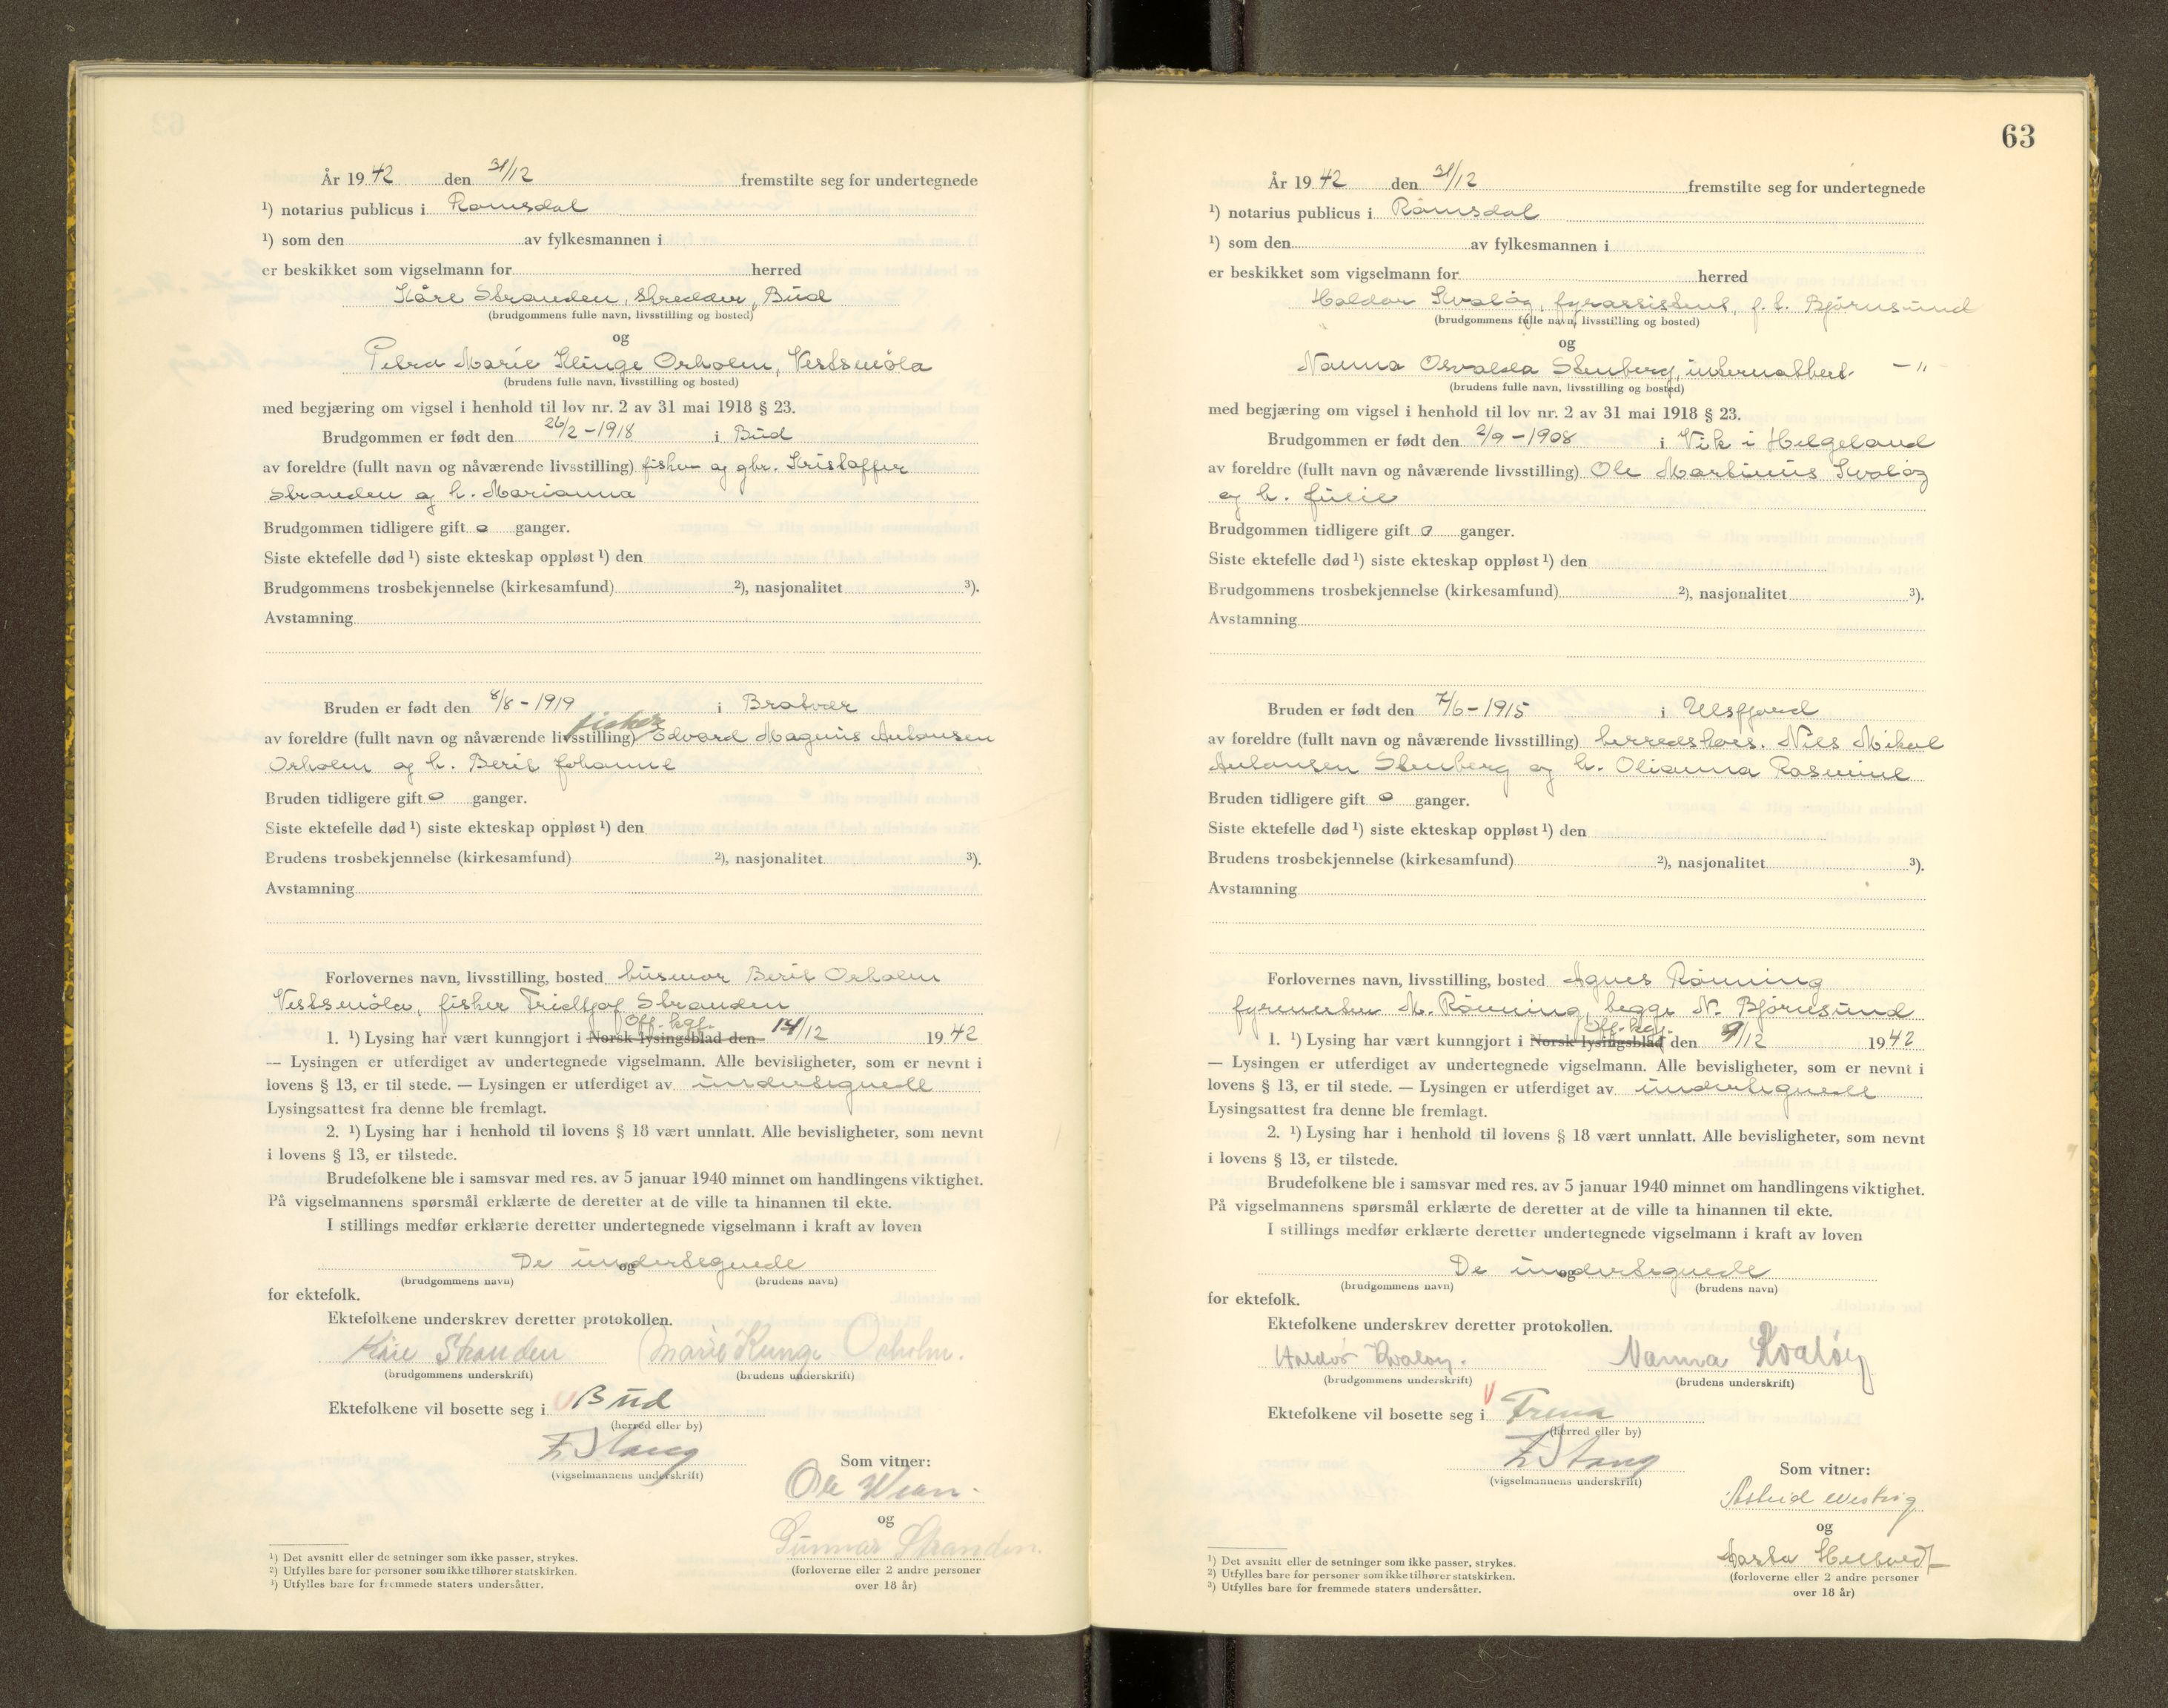 År 1942 den 31/12 fremstilte seg for undertegnede
¹) notarius publicus i Romsdal
¹) som den av fylkesmannen i
er beskikket som vigselmann for herred
Kåre Stranden, skredder, Bud
(brudgommens fulle navn, livsstilling og bosted)
og
Petra Marie Klinge Orholm, Vestsmøla
(brudens fulle navn, livsstilling og bosted)
med begjæring om vigsel i henhold til lov nr. 2 av 31 mai 1918 § 23.
Brudgommen er født den 26/2 - 1918 i Bud
av foreldre (fullt navn og nåværende livsstilling) fisker og gbr. Kristoffer
Stranden og h. Marianna
Brudgommen tidligere gift 0 ganger.
Siste ektefelle død ¹) siste ekteskap oppløst ¹) den
Brudgommens trosbekjennelse (kirkesamfund) ²), nasjonalitet ³).
Avstamning
Bruden er født den 8/8 - 1919 i Bratvær
fisker
av foreldre (fullt navn og nåværende livsstilling) Edvard Magnus Antonsen
Orholm og h. Berit Johanne
Bruden tidligere gift 0 ganger.
Siste ektefelle død ¹) siste ekteskap oppløst ¹) den
Brudens trosbekjennelse (kirkesamfund) ²), nasjonalitet ³).
Avstamning
Forlovernes navn, livsstilling, bosted husmor Berit Orholm
Vestsmøla, fisker Fridtjof Stranden
Off. kgj.
1. ¹) Lysing har vært kunngjort i Norsk lysingsblad den 14/12 1942
— Lysingen er utferdiget av undertegnede vigselmann. Alle bevisligheter, som er nevnt i
lovens § 13, er til stede. — Lysingen er utferdiget av undertegnede
Lysingsattest fra denne ble fremlagt.
2. ¹) Lysing har i henhold til lovens § 18 vært unnlatt. Alle bevisligheter, som nevnt
i lovens § 13, er tilstede.
Brudefolkene ble i samsvar med res. av 5 januar 1940 minnet om handlingens viktighet.
På vigselmannens spørsmål erklærte de deretter at de ville ta hinannen til ekte.
I stillings medfør erklærte deretter undertegnede vigselmann i kraft av loven
De undertegnede
og
(brudgommens navn) (brudens navn)
for ektefolk.
Ektefolkene underskrev deretter protokollen.
Kåre Stranden Marie Klinge Orholm.
(brudgommens underskrift) (brudens underskrift)
Ektefolkene vil bosette seg i Bud
(herred eller by)
Stang
(vigselmannens underskrift)
Som vitner:
Ole
og
Gunnar Stranden.
(forloverne eller 2 andre personer
over 18 år)
¹) Det avsnitt eller de setninger som ikke passer, strykes.
²) Utfylles bare for personer som ikke tilhører statskirken.
³) Utfylles bare for fremmede staters undersåtter.
63
År 1942 den 31/12 fremstilte seg for undertegnede
¹) notarius publicus i Romsdal
¹) som den av fylkesmannen i
er beskikket som vigselmann for herred
Haldor Kvaløy, fyrassistent, f. t. Bjørnsund
(brudgommens fulle navn, livsstilling og bosted)
og
Nanna Osvalda Stenberg, internatbest. — "
(brudens fulle navn, livsstilling og bosted)
med begjæring om vigsel i henhold til lov nr. 2 av 31 mai 1918 § 23.
Brudgommen er født den 2/9 - 1908 i Vik i Helgeland
av foreldre (fullt navn og nåværende livsstilling) Ole Martinus Kvaløy
og h. Julie
Brudgommen tidligere gift 0 ganger.
Siste ektefelle død ¹) siste ekteskap oppløst ¹) den
Brudgommens trosbekjennelse (kirkesamfund) ²), nasjonalitet ³).
Avstamning
Bruden er født den 7/6 - 1915 i Ulsfjord
av foreldre (fullt navn og nåværende livsstilling) herredskass. Nils Mikal
Antonsen Stenberg og h. Olianna Rasmine
Bruden tidligere gift 0 ganger.
Siste ektefelle død ¹) siste ekteskap oppløst ¹) den
Brudens trosbekjennelse (kirkesamfund) ²), nasjonalitet ³).
Avstamning
Forlovernes navn, livsstilling, bosted Agnes Rønning
fyrmester M. Rønning, begge N. Bjørnsund
Off. kgj.
1. ¹) Lysing har vært kunngjort i Norsk lysingsblad den 9/12 1942
— Lysingen er utferdiget av undertegnede vigselmann. Alle bevisligheter, som er nevnt i
lovens § 13, er til stede. — Lysingen er utferdiget av undertegnede
Lysingsattest fra denne ble fremlagt.
2. ¹) Lysing har i henhold til lovens § 18 vært unnlatt. Alle bevisligheter, som nevnt
i lovens § 13, er tilstede.
Brudefolkene ble i samsvar med res. av 5 januar 1940 minnet om handlingens viktighet.
På vigselmannens spørsmål erklærte de deretter at de ville ta hinannen til ekte.
I stillings medfør erklærte deretter undertegnede vigselmann i kraft av loven
De undertegnede
og
(brudgommens navn) (brudens navn)
for ektefolk.
Ektefolkene underskrev deretter protokollen.
Haldor Kvaløy. Nanna Kvaløy
(brudgommens underskrift) (brudens underskrift)
Ektefolkene vil bosette seg i Frena
(herred eller by)
Stang
(vigselmannens underskrift)
Som vitner:
Astrid
og
(forloverne eller 2 andre personer
over 18 år)
¹) Det avsnitt eller de setninger som ikke passer, strykes.
²) Utfylles bare for personer som ikke tilhører statskirken.
³) Utfylles bare for fremmede staters undersåtter.